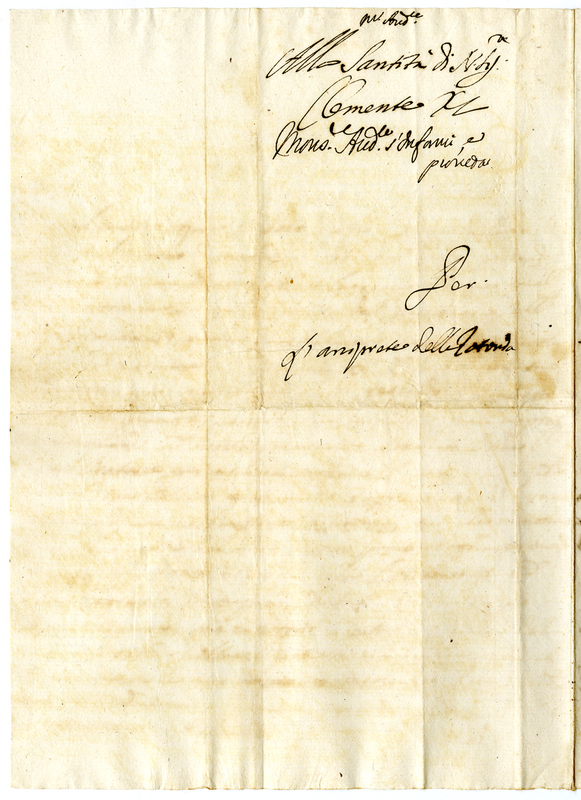 Mr Aud.re
Alla Santità di N. Sig.re
Clemente XI
Mons.re Aud.re s'informi, e
proveda
Per
L'arciprete della Rotonda